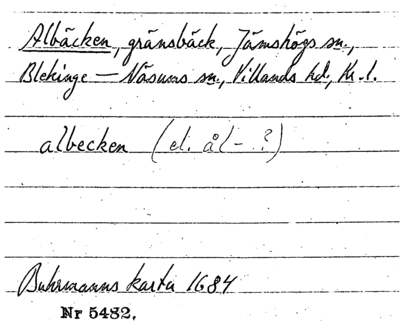 Albäcken, gränsbäck, Jämshögs sn.,
Blekinge — Näsums sn., Villands hd., Kr. l.
albecken (el. ål- ?)
Buhrmanns karta 1684
Nr 5482.